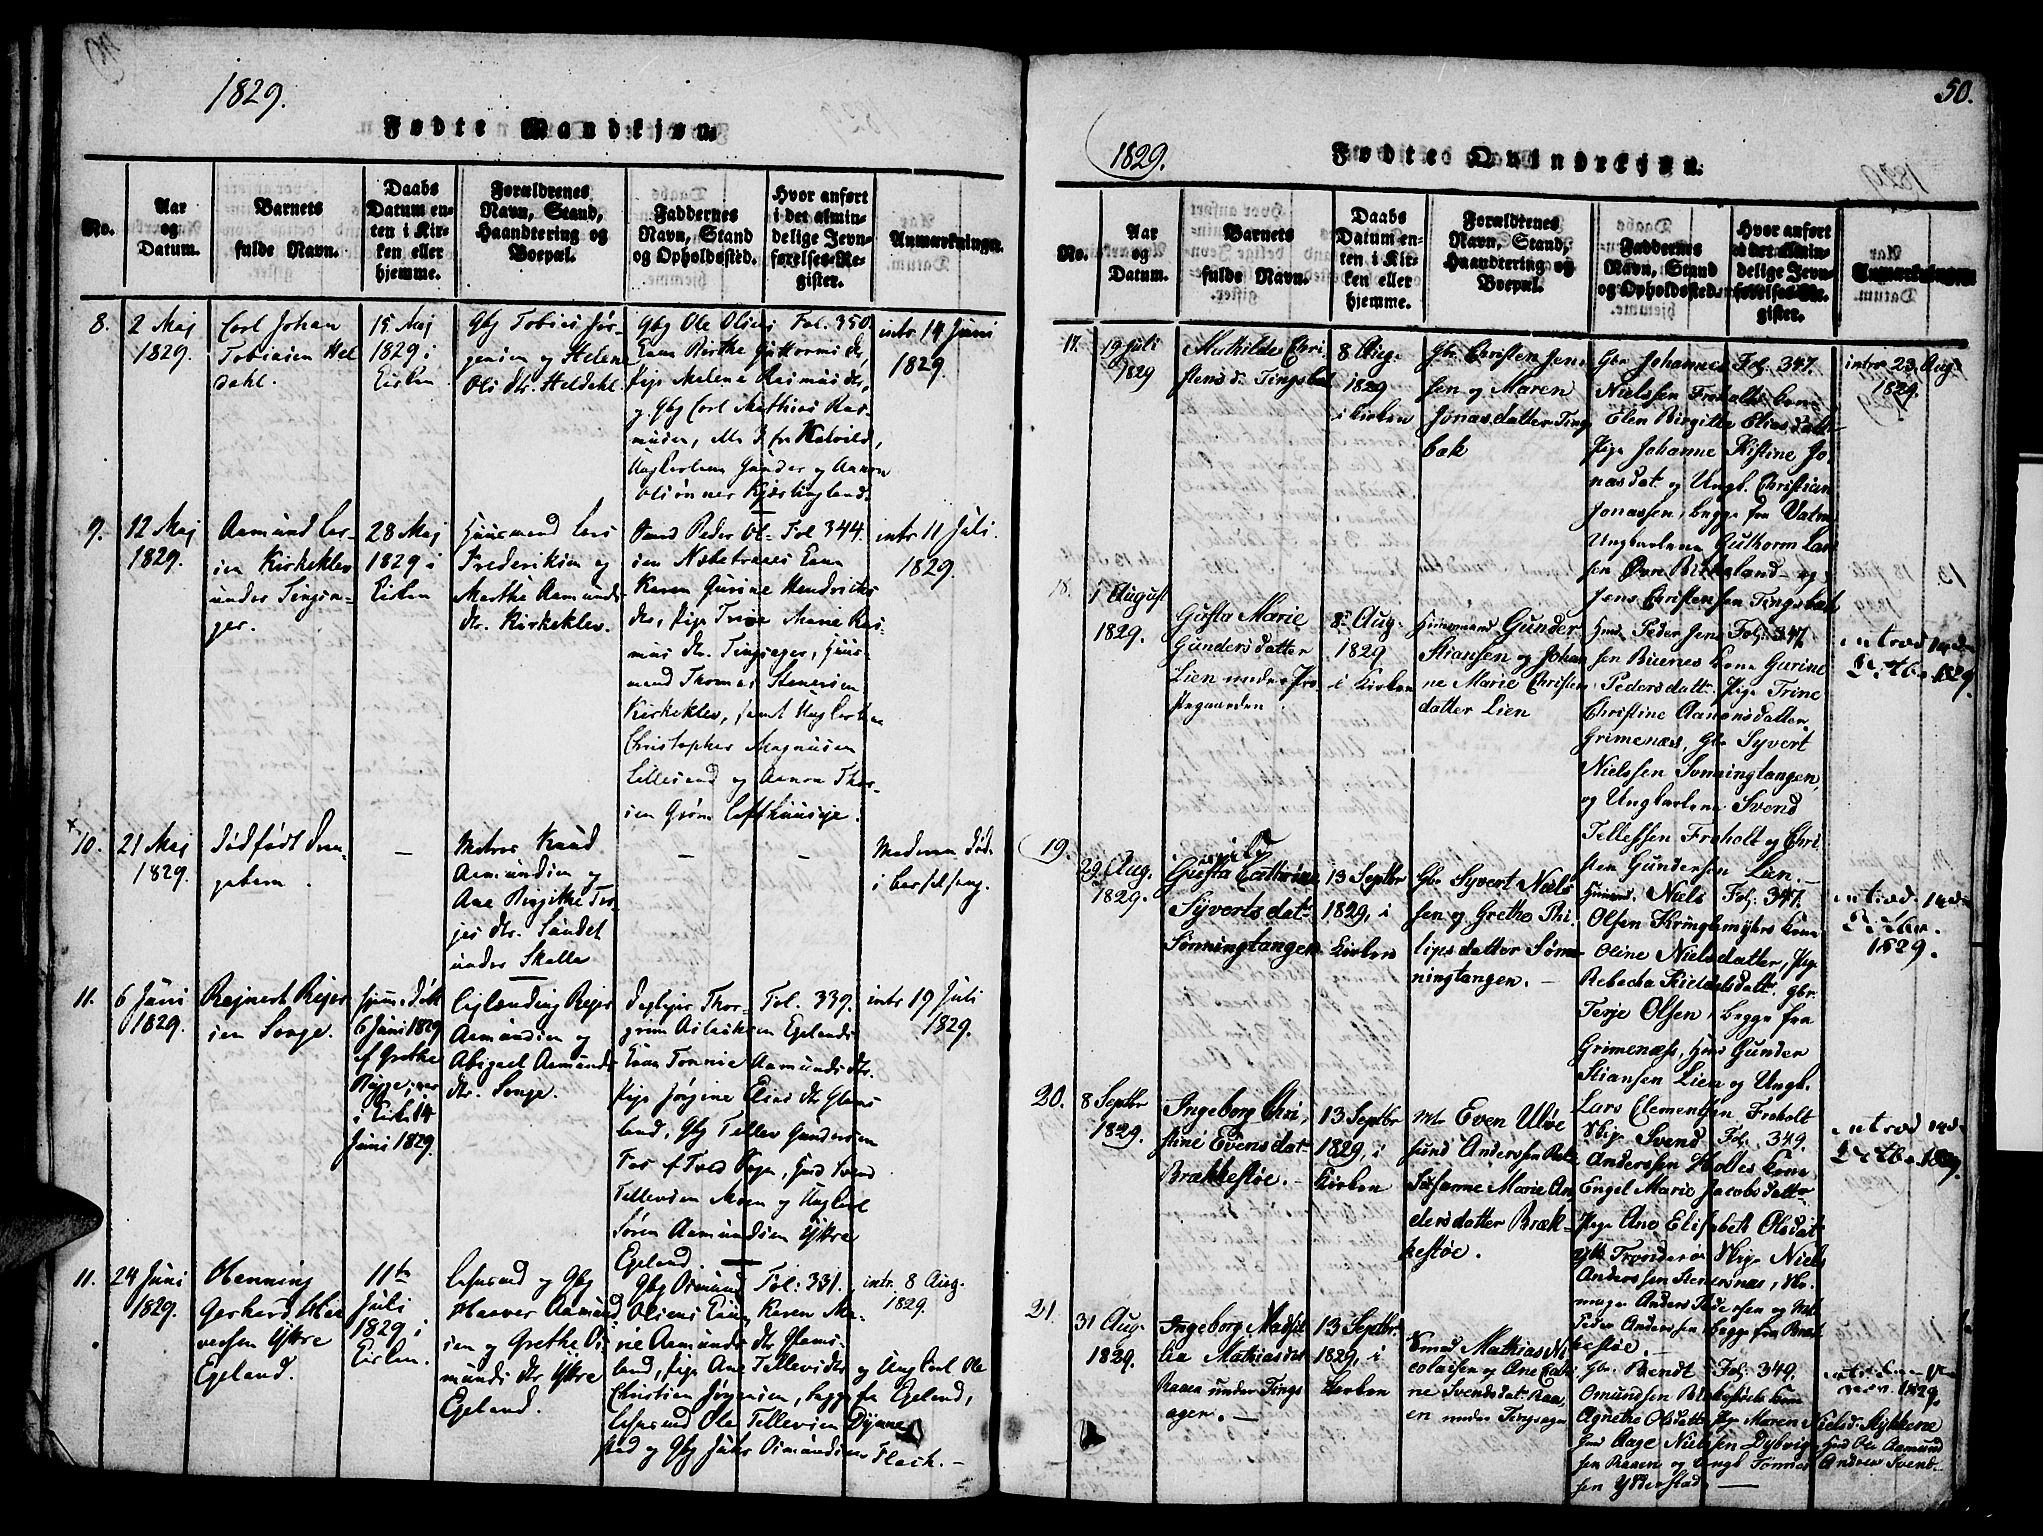 1829.
Fødte Mandkjøn.
No.
Aar
og
Datum.
Barnets
fulde Navn.
Daabs
Datum en-
ten i Kir-
ken eller
hjemme.
Forældrenes
Navn, Stand,
Haandtering og
Boepæl.
Faddernes
Navn, Stand
og Opholdssted.
Hvor anført
i det almin-
delige Jevn-
førelses-Re-
gister.
Anmærkninger.
8.
2 Maj
1829.
Carl Johan
Tobiasen Hel
dahl.
15 Maj
1829 i
Kirken
Gbr Tobias Jør-
gensen og Helene
Olsdtr. Heldahl
Gbr Ole Olsens
Kone Birthe Guttormsdtr,
Pige Malene Rasmusdtr,
og Gbr Carl Mathias Ras-
musen,
Ungkarlene Gunder og Aanon
Olsønner Kjørlingland.
Fol. 350.
intr 14 Juni
1829.
9.
12 Maj
1829.
Aamund Lar-
sen Kirkeklev
under Tingsa-
ger.
28 Maj
1829 i
Kirken
Huusmand Lars
Frederiksen og
Marthe Aamunds
dtr. Kirkeklev.
Peder Ol-
sen Kone
Karen Gurine Hendriks
dtr, Pige Trine Marie Ras-
mus dtr. Tingsager, Huus-
mand Thomas Stenersen
Kirkeklev, samt Ungkarlene
Christopher Magnusen
Lillesand og Aanon Thor-
sen Grøm
Fol 344.
intr 11 Juli.
1829.
10.
21 Maj
1829.
Dødfødt Dren-
gebarn.
—
Matros Knud
Aamundsen og
Ane Birgitte Ter-
jes dtr. Sandet
under Skalle
—
—
Moderen død
i Barselseng.
11.
6 Juni
1829.
Rejnert Rejer
sen Songe.
Hjem. døbt
6 Juni 1829
af Grethe
i Kirk. 14
Juni 1829.
Rejer
Aamundsen og
Abigael Aamunds
dtr. Songe.
Thor-
grim Aslaksen Egelands
Kone Tonnie Aamundsdtr.
Pige Jørgine Elias dtr Glams
land, Gbr Tellev Gundersen
Svend
Tellevsen Moen og Ungkarl
Søren Aamundsen Yttre
Egeland.
Fol. 339.
intr 19 Juli
1829.
11.
24 Juni
1829.
Henning
Gerhard Haa
versen Yttre
Egeland.
11te
Juli
1829 i
Kirken.
og Gbr
Haaver Aamund
sen og Grethe Os
munds dtr Yttre
Egeland.
Gbr Osmund
Olsens Kone Karen Ma-
rie Aamunds dtr Glams-
land, Pige Ane Tellevsdtr og Ungkarl Ole
Christian Jørgensen, begge fra Egeland,
Ole Tellevsen Dynne
stad og Gbr Osmundsen Flack.
Fol: 331.
intr. 8 Aug.
1829.
50.
1829.
Fødte Qvindekjøn.
No.
Aar
og
Datum.
Barnets
fulde Navn.
Daabs
Datum en-
ten i Kir-
ken eller
hjemme.
Forældrenes
Navn, Stand,
Haandtering og
Boepæl.
Faddernes
Navn, Stand
og Opholdssted.
Hvor anført
i det almin-
delige Jevn-
førelses-Re-
gister.
Anmærkninger.
17.
19 Juli
1829
Mathilde Chri
stens d. Tingsbak
8 Aug.
1829
i Kirken
Gbr. Christen Jen-
sen og Maren
Jonasdatter Tings
bak
Gbr Johannes
Nielssen Froholts kone
Elen Birgitte Eliasdatter
Pige Johanne Kistine Jo-
nasdat. og Ungk. Christian
Jonassen, begge fra Vatne
Ungkarlene Guthorm Lar
sen Øvre Birkeland og
Jens Christensen Tingsbak
Fol. 347.
intr 23 Aug.
1829.
18.
1 August
1829.
Gusta Marie
Gundersdatter
Lien under Præ
stegaarden
8 Aug.
1829
i Kirken
Huusmand Gunder
Stiansen og Johan
ne Marie Christen
datter Lien
Huusm. Peder Jen
sen Buenes kone Gurine
Pedersdatt. Pige Trine
Christine Aanonsdatter
Grimenæs, Gbr Syvert
Nielssen Sønningtangen,
og Ungkarlene Svend
Tellefssen Froholt og Chri
sten Gundersen Lien.—
Fol. 347.
introd. 14de
Octbr 1829.
19.
29 Aug.
1829.
Gusta Cathrine
Syvertsdat
Sønningtangen
13 Septbr
1829, i
Kirken
Gbr Syvert Niels
sen og Grethe Phi
lipsdatter Søn-
ningtangen. —
Huusmd. Niels
Olsen Kringlemyhrs kone
Oline Nielsdatter, Pige
Rebecka Kieldsdatt. Gbr.
Terje Olsen, begge fra
Grimenæs, Hmd Gunder
Stiansen Lien og Ungk.
Lars Clementsen Froholt
Fol. 347.
introd. 14de
Octbr.
1829.
20.
8 Septbr
1829.
Ingeborg Chri
stine Evensdat
Brækkestøe. —
13 Septbr
1829, i
Kirken
Mr Even Ulve
sund Anderssen og
Susanne Marie An
dersdatter Bræk-
kestøe.
Skip. Svend
Anderssen Holtes kone
Engel Marie Jacobsdatter
Pige Ane Elisabeth Olsdat
Skip. Niels
Anderssen Stenersnæs,
Anders Pedersen og
Peder Anderssen, begge fra Bræk
kestøe. —
Fol. 349.
introd 14de
Octbr 1829.
21.
31 Aug.
1829.
Ingeborg Mathil
da Mathiasdat
Raaen under Tings
agen. —
13 Septbr.
1829, i
Kirken
Mathias Ni
colaisen og Ane Cathri
ne Svendsdat. Raa
en under Tingsagen
Gbr. Berndt
Omundsen Brækkestøes kone
Agnethe Olsdatt. Pige Maren Nielsd. Stykkene
Hmd Aage Nielssen Dybvig, Hmd Ole Aamund
sen Raaen og Ungk. Tønnes Andreas Svend-
sen Ytterstad —
Fol. 349.
1829.